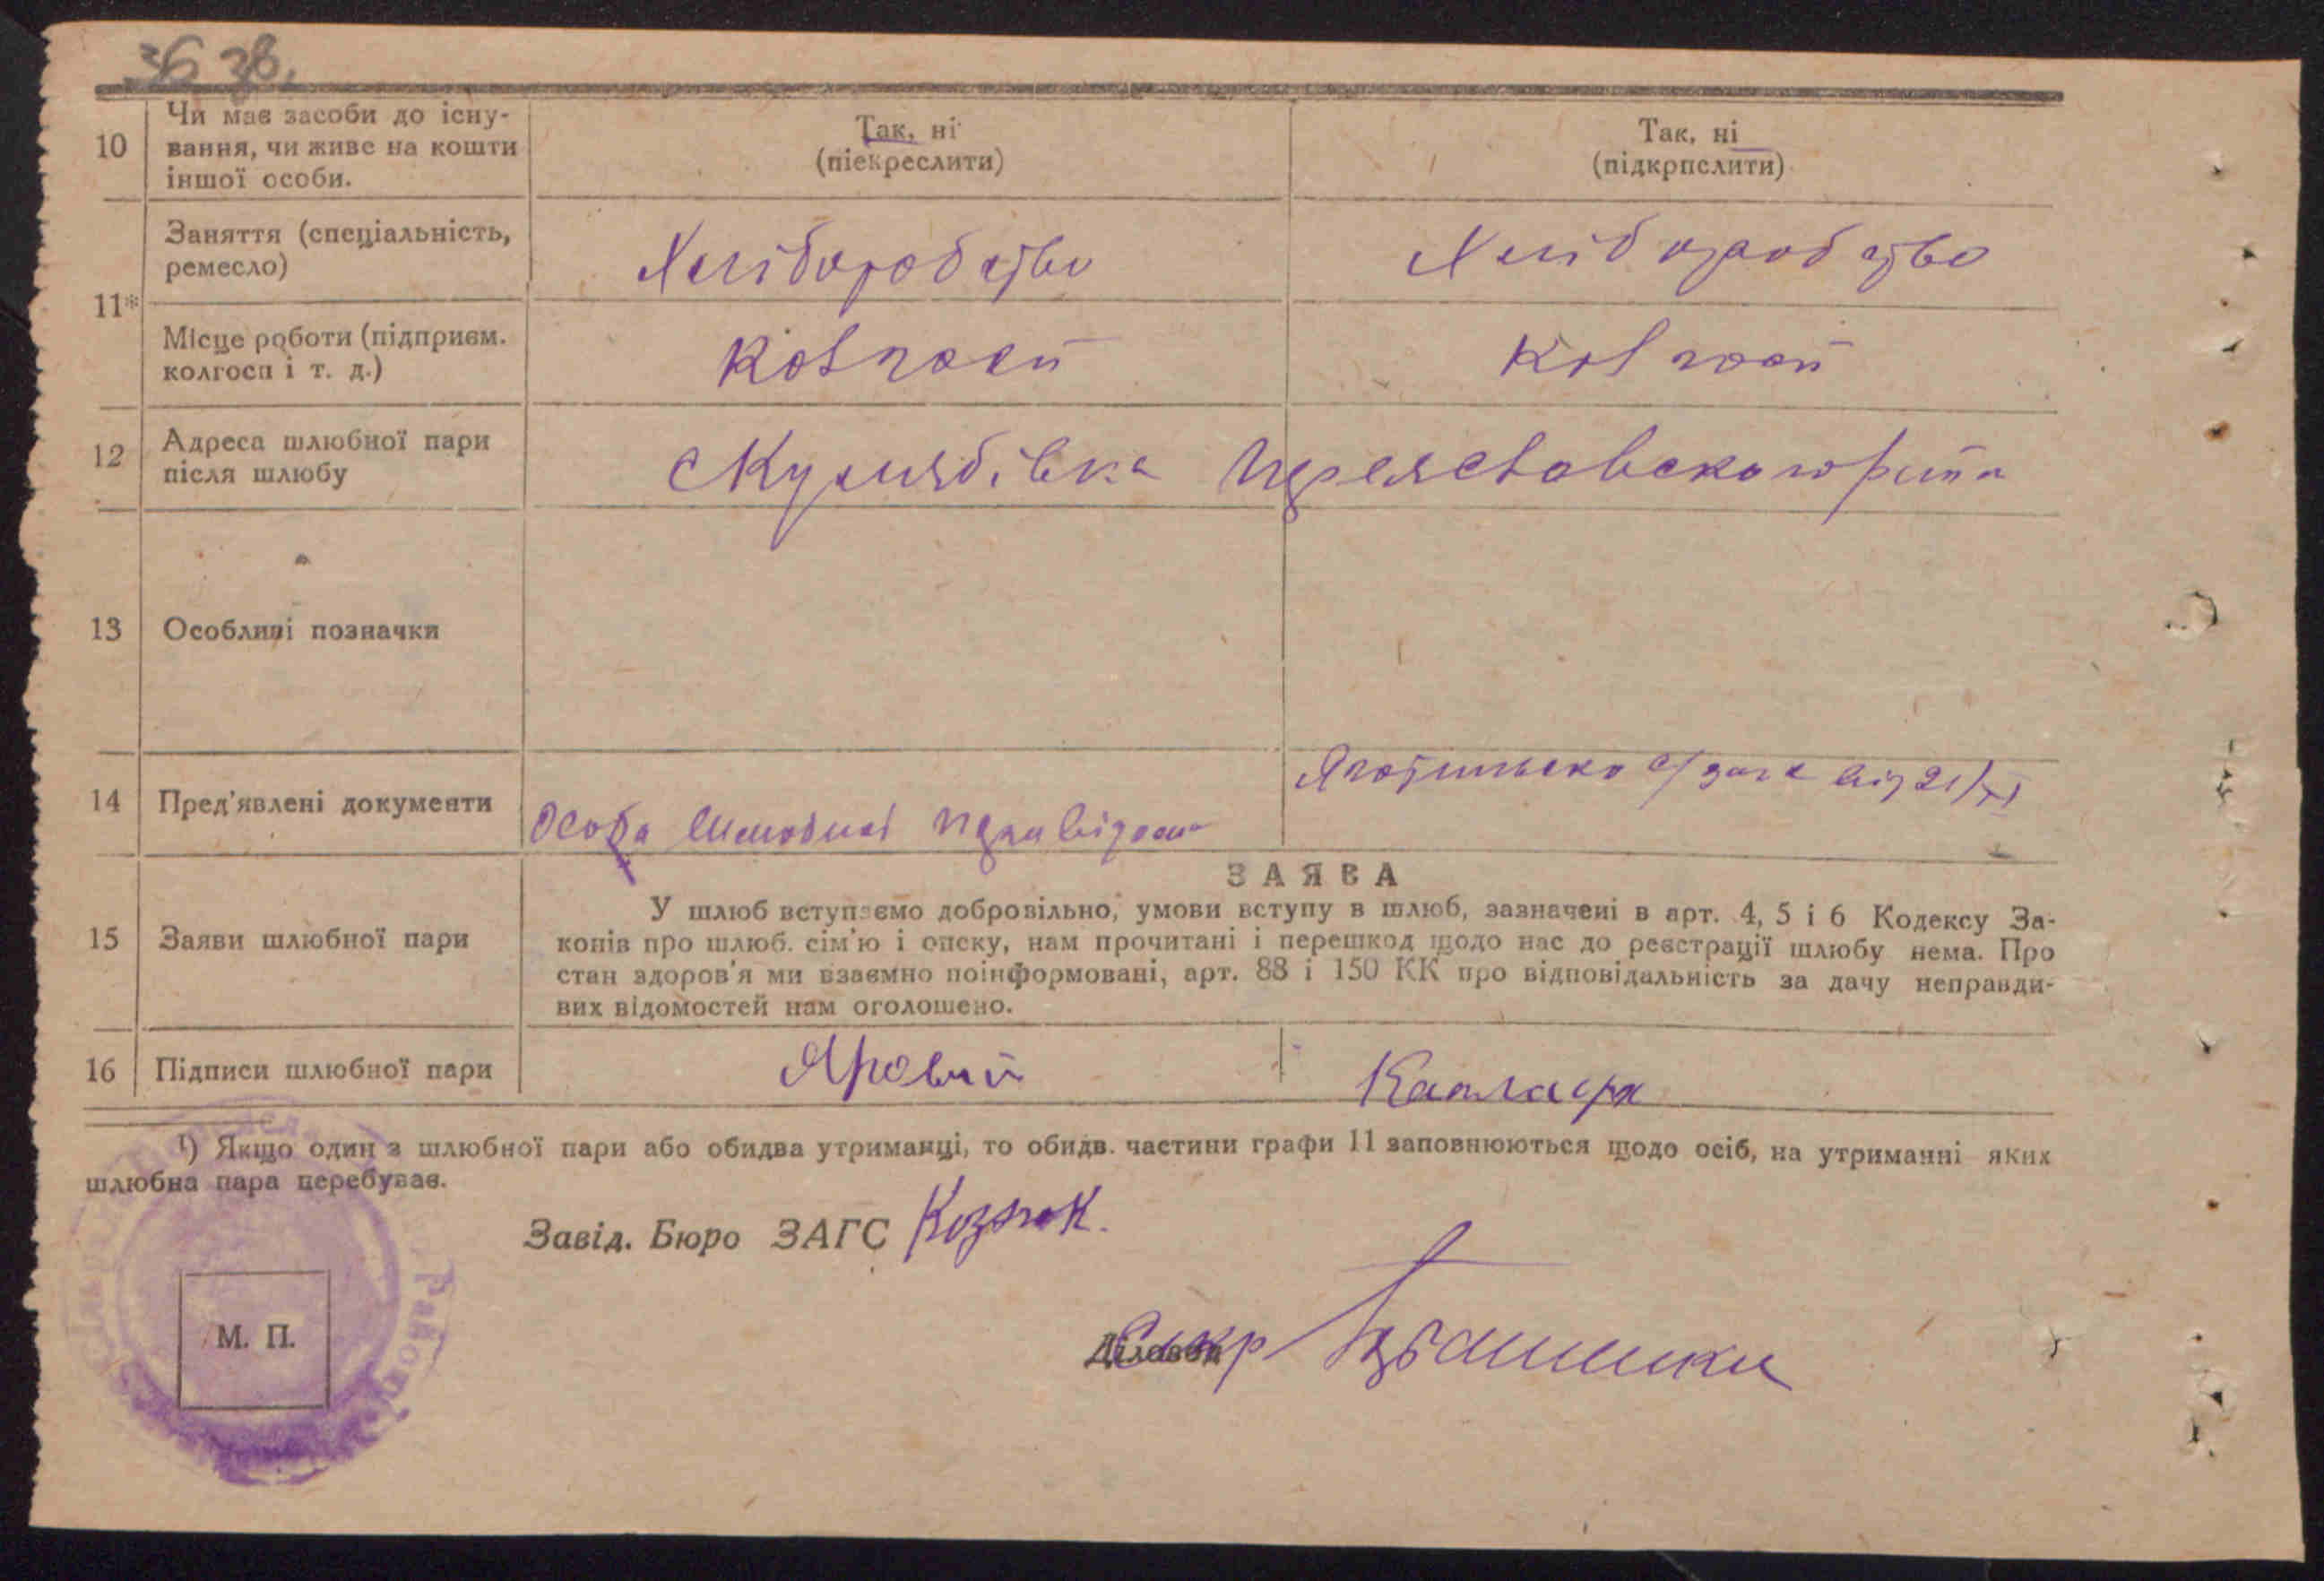 36 зв.
10 Чи має засоби до існу-
вання, чи живе на кошти
іншої особи.
Так, ні
(піекреслити)
Так, ні
(підкрпслити)
11*
Заняття (спеціальність,
ремесло)
Хліборобство
Хліборобство
Місце роботи (підприєм.
колгосп і т. д.)
Колгосп
Колгосп
12 Адреса шлюбної пари
після шлюбу
13 Особливі позначки
14 Пред'явлені документи
Особа
від 21/XI
ЗАЯВА
15 Заяви шлюбної пари
У шлюб вступаємо добровільно, умови вступу в шлюб, зазначені в арт. 4, 5 і 6 Кодексу За-
конів про шлюб. сім'ю і опску, нам прочитані і перешкод щодо нас до реєстрації шлюбу нема. Про
стан здоров'я ми взаємно поінформовані, арт. 88 і 150 КК про відповідальність за дачу неправди-
вих відомостей нам оголошено.
16 Підписи шлюбної пари
Яровий
¹) Якщо один з шлюбної пари або обидва утриманці, то обидв. частини графи 11 заповнюються щодо осіб, на утриманні яких
шлюбна пара перебуває.
Завід. Бюро ЗАГС
Діловод
М. П.